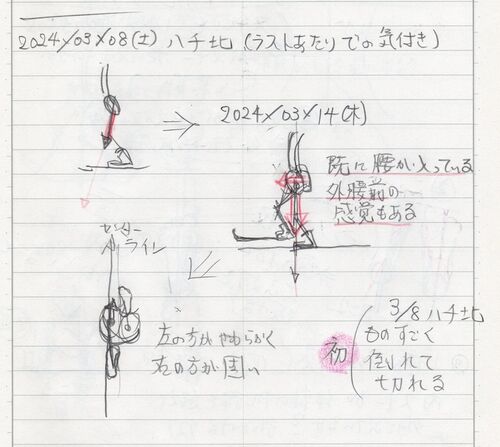 2024/03/08(土) ハチ北 (ラストあたりでの気付き)
2024/03/14(木)
既に腰が入っている
外腰前の
感覚もある
センター
ライン
左の方がやわらかく
右の方が固い
初
3/8 ハチ北
ものすごく
倒れて
切れる